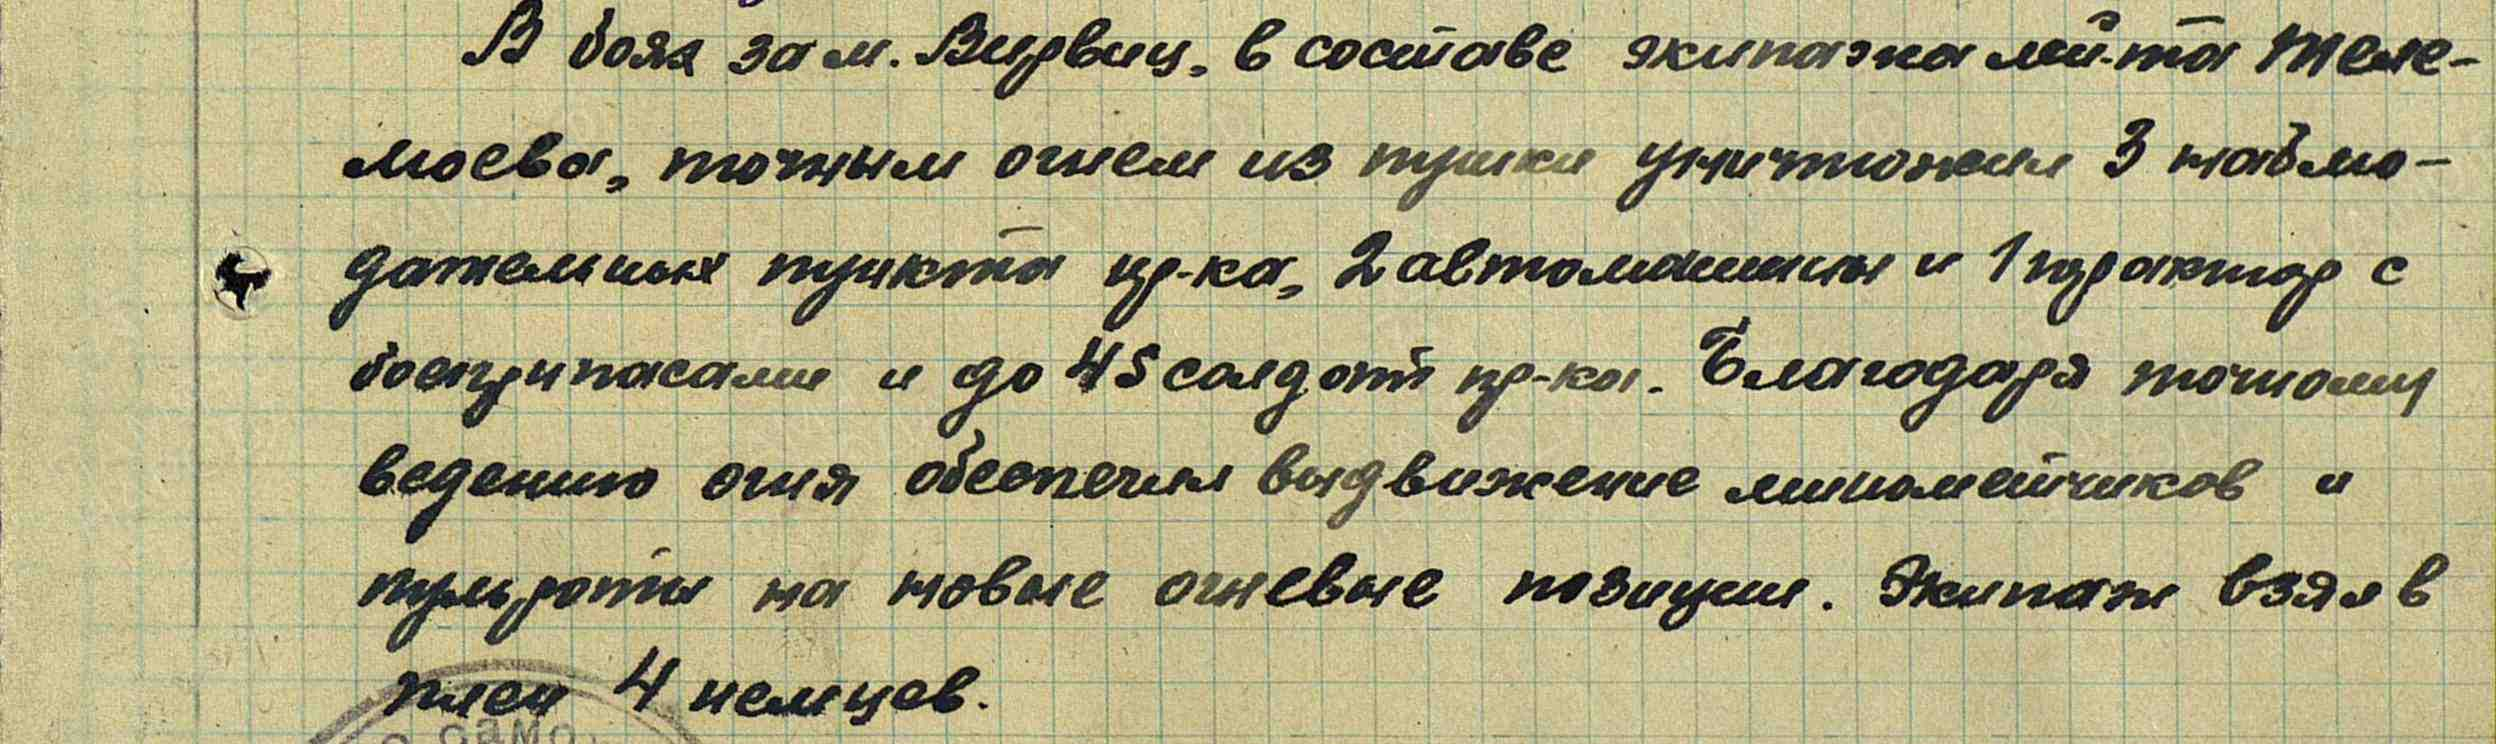 В боях за м. Вирвиц, в составе экипажа лей-та Теле-
моева, точным огнем из пушки уничтожил 3 наблю-
дательных пункта пр-ка, 2 автомашины и 1 трактор с
боеприпасами и до 45 солдат пр-ка. Благодаря точному
ведению огня обеспечил выдвижение минометчиков и
пульроты на новые огневые позиции. Экипаж взял в
плен 4 немцев.
само